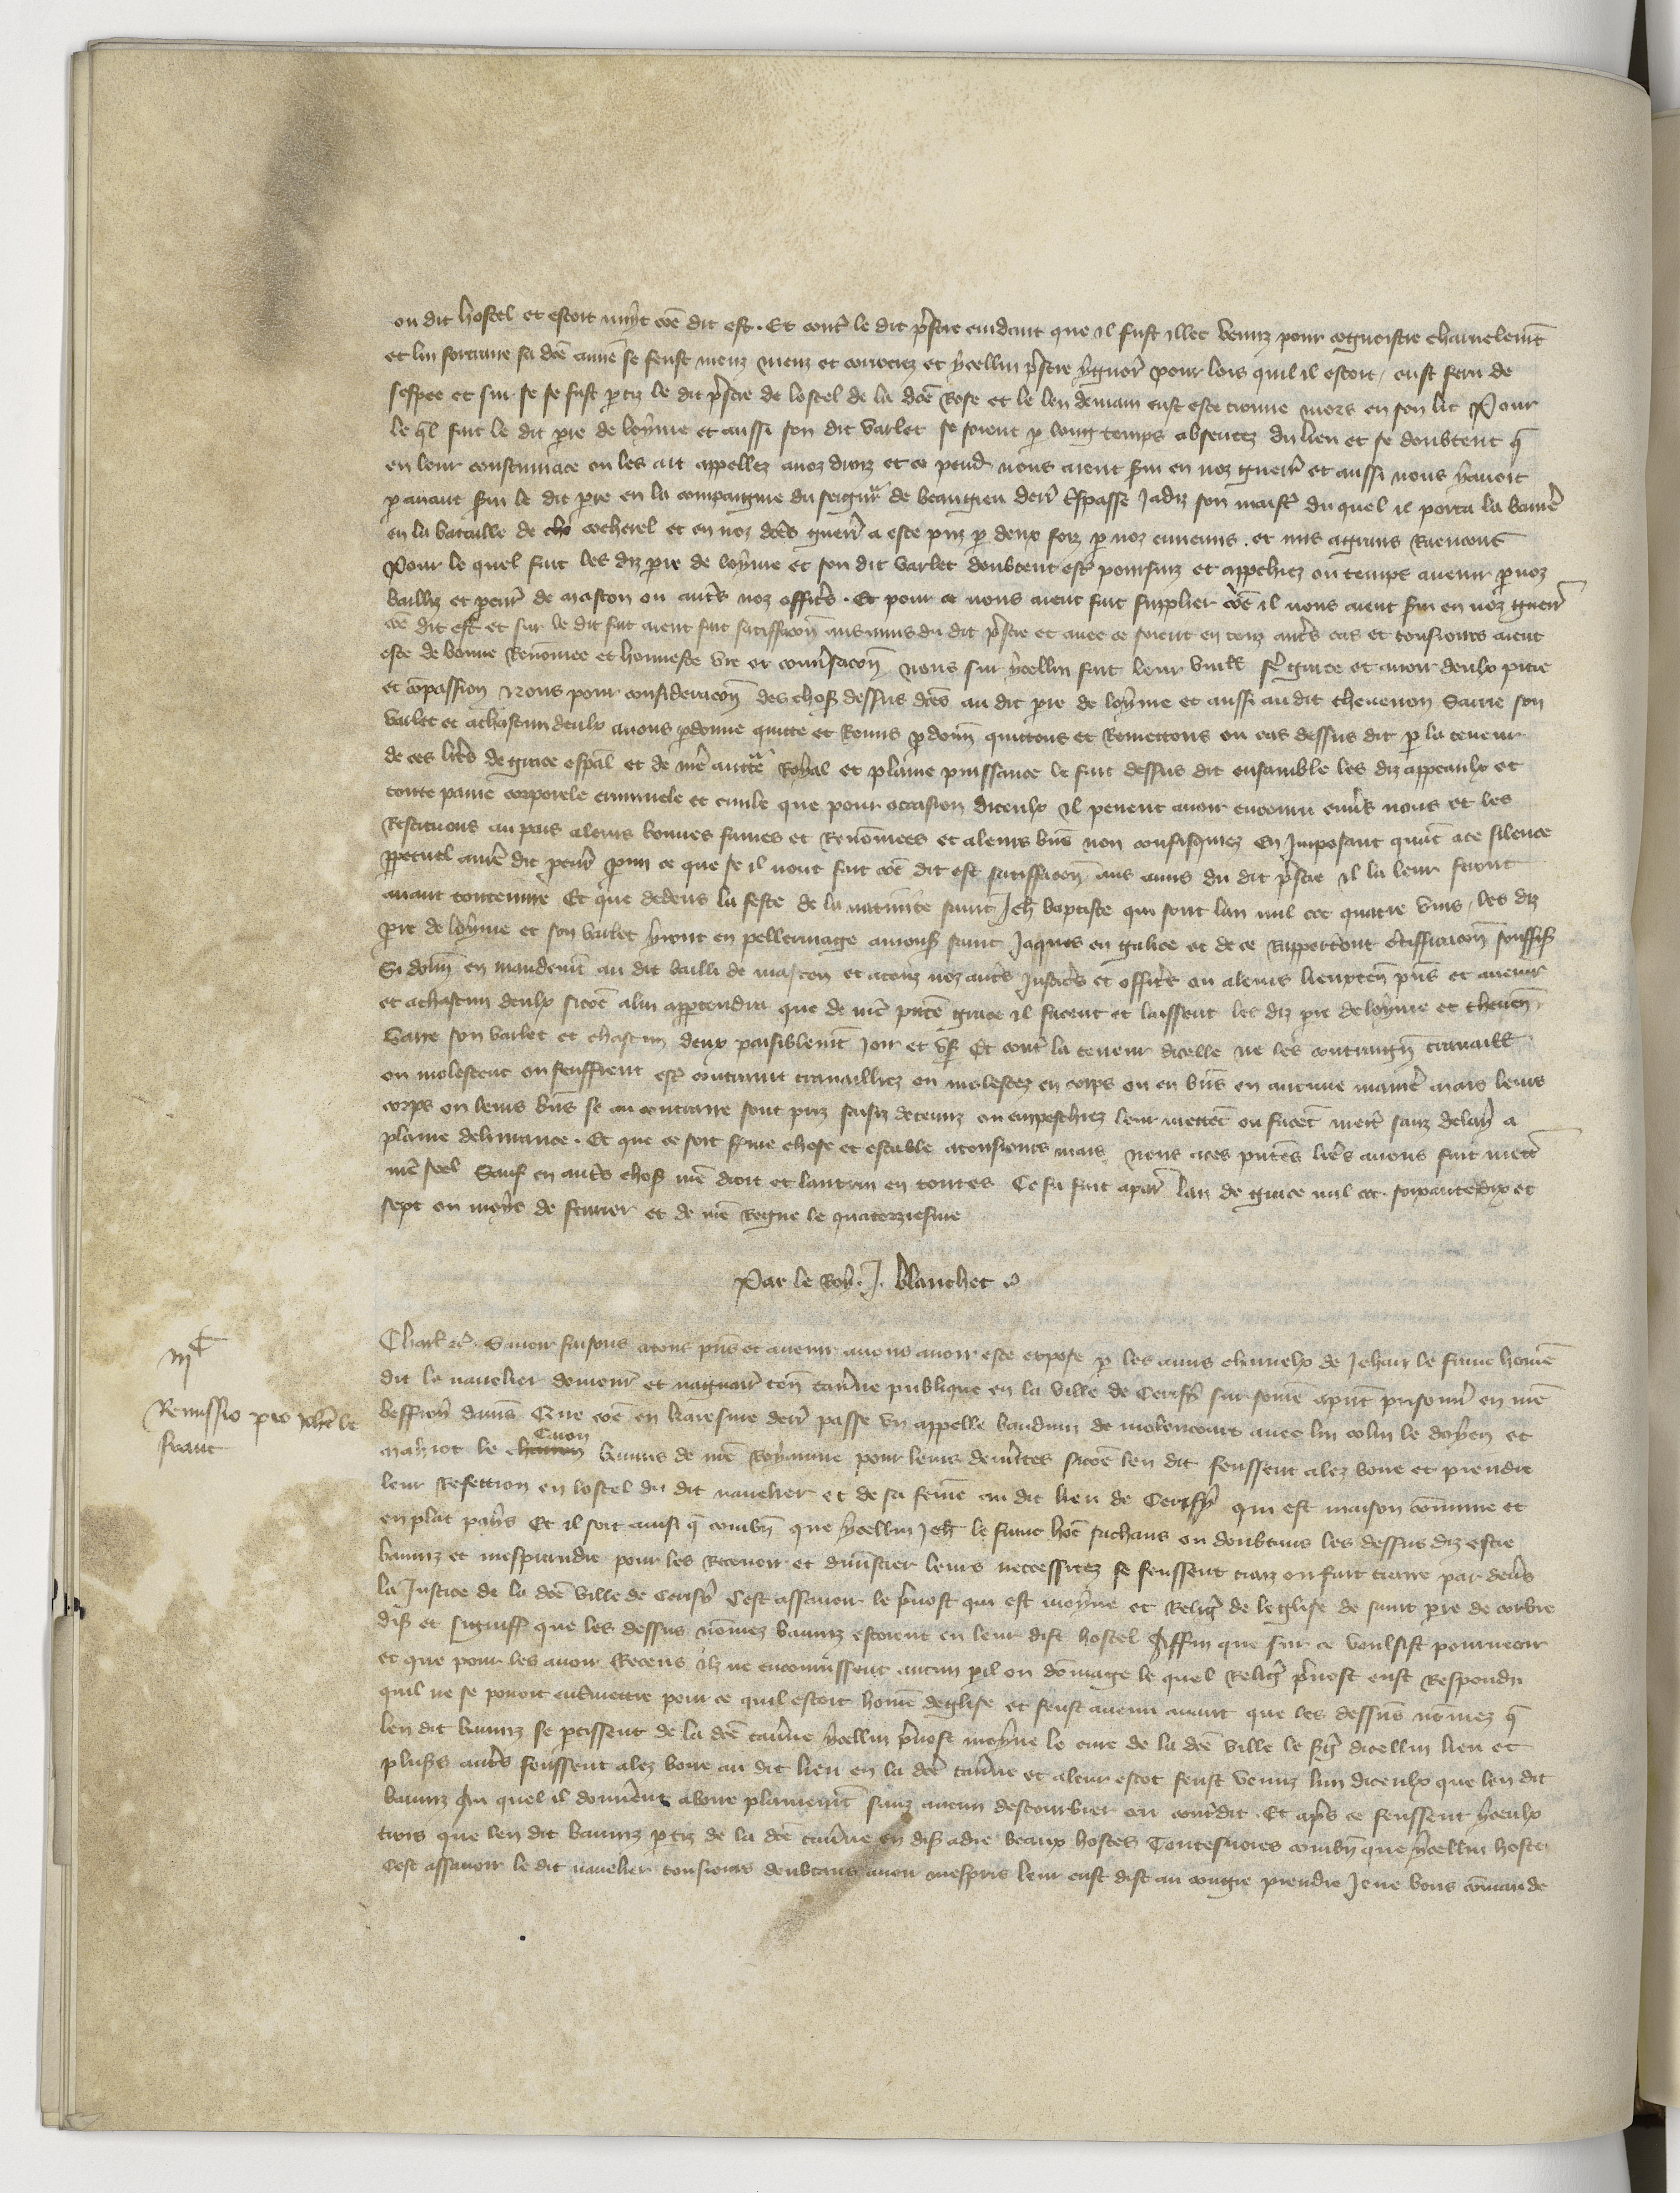 ou dit hostel et estoit nuyt coe dit est. Et contr le dit pstre cuidant que il fust illec venuz pour cognoistre charnelemt
et lui fortraire sa dce amie se feust meuz et courrciez et ycellui pstre ygnor pour lors quil il estoit, eust feru de
sespee et sur se se fust ptiz le dit pstre de lostel de la dce Rose et le lendemain eust este trouve mors en son lit Pour
le ql fait le dit pre de loyme et aussi son dit varlet se soient p long temps absentez du lieu et se doubtent q
en leur contumace on les ait appellez a noz droiz et ce pend nous aient sui en noz guerr et aussi nous y avoit
p avant sui le dit pre en la compaignie du seigneur de beaugieu derr espasse jadiz son maistr du quel il porta la banie
en la bataille de cocherel et en noz dces guerr a este priz p deux foiz p noz ennemis. et mis a grans raencons
Pour le quel fait les diz pre de loyme et son dit varlet doubtent estr poursuiz et appchiez ou temps avenir p noz
bailliz et pcur de mascon ou autrs noz offics. Et pour ce nous aient fait supplier coe il nous aient sui en noz guerr
coe dit est et sur le dit fait aient fait satisffacon aus amis du dit pstre et avec ce soient en touz autrs cas et tousiours aient
este de bonne renomee et honneste vie et conusacon nous sur ycellui fait leur vuill fe grace et avoir deulx pitie
et copassion Nous pour consideracon des chos dessus dces au dit pre de loyme et aussi au dit thevenon Sarre son
varlet et a chascun deulx avons pdonne quitte et Remis pdonn quittons et Remettons ou cas dessus dit p la teneur
de ces lres de grace espal et de nre auctte Royal et plaine puissance le fait dessus dit ensamble les diz appeaulx et
toute paine corporele criminele et civile que pour occasion diceulx il pevent avoir encouru envs nous et les
Restituons au pais a leurs bonnes fames et Renomees et a leurs bns non confisquiez En Imposant quat a ce silence
ppetuel a nre dit pcur pmi ce que se il nont fait coe dit est satisffacon aus amis du dit pstre il la leur feront
avant toute euvre Et que dedens la feste de la nativite saint Jeh baptiste qui sont lan mil ccc quatre vins, les diz
pre de loyme et son varlet yront en pellerinage a mons saint Jaques en galice et de ce rapporteront ctifficacon souffis
Si donn en mandemt au dit bailli de mascon et a touz noz autrs Justicrs et officrs ou a leurs lieuxten pns et avenir
et a chascun deulx sicoe a lui appartendra que de nre pnte grace il facent et laissent les diz pre de loyme et theven
Sarre son varlet et chascun deux paisiblemt joir et us Et contr la teneur dicelle ne les contraign travaill
ou molestent ou seuffrent estr contrains travailliez ou molestez en corps ou en bns en aucune manie mais leurs
corps ou leurs bns se au contraire sont priz saisiz detenuz ou empeschiez leur mettet ou facet mettr sanz delay a
plaine delivrance. Et que ce soit ferme chose et estable a tousiours mais nous a ces pntes lres avons fait mettr
nre seel Sauf en autrs chos nre droit et lautrui en toutes Ce fu fait a par lan de grace mil ccc. soixante dix et
sept ou moys de fevrier et de nre Regne le quatorziesme
Par le Roy. J. blanchet
IIIC
Remissio pro Joh le
franc
Charl &c. Savoir faisons a tous pns et avenir a nous avoir este expose p les amis charnelx de Jehan le franc home
dit le navelier demeur et naguair ten tavne publique en la ville de Cerisy sur some a pnt prisonn en nre
beffroy damis Que coe en karesme derr passe un appelle baudoin de molencourt avec lui colin le doyen et
mayhiot le charon Caron banniz de nre Royaume pour leurs demerites sicoe len dit feussent alez boire et prendre
leur Refection en lostel du dit navelier et de sa feme au dit lieu de Cerisy qui est maison comune et
en plat pays Et il soit ainsi q combn que ycellui Jeh le franc hoe sachans ou doubtans les dessus diz estre
banniz et mesprandre pour les Recevoir et dministrer leurs necessitez se feussent traiz ou fait traire par devs
la Justice de la dce ville de Cerisy Cest assavoir le pvost qui est moyne et Relig de leglise de saint pre de corbie
dis et signiff que les dessus nomez banniz estoient en leur dist hostel Affin que sur ce voulsist pourveoir
et que pour les avoir Receus ilz ne encourussent aucun pil ou domage le quel Relig pvost eust Respondu
quil ne se povoit entremettre pour ce quil estoit home deglise et feust avenu avant que les dessus nomez q
len dit banniz se ptissent de la dce tavne ycellui pvost moyne le cure de la dce ville le sg dicellui lieu et
plus autrs feussent alez boire au dit lieu en la dce tavne et a leur escot feust venuz lun diceulx que len dit
banniz Au quel il donnert a boire plainemt sanz aucun destourbier ou contdit. Et aprs ce feussent yceulx
trois que len dit banniz ptiz de la dce tavne en dis adie beaux hostes Toutesvoies combn que ycellui hoste
Cest assavoir le dit navelier tousiours doubtans avoir mespris leur eust dist au congie prendre Je ne vous comande